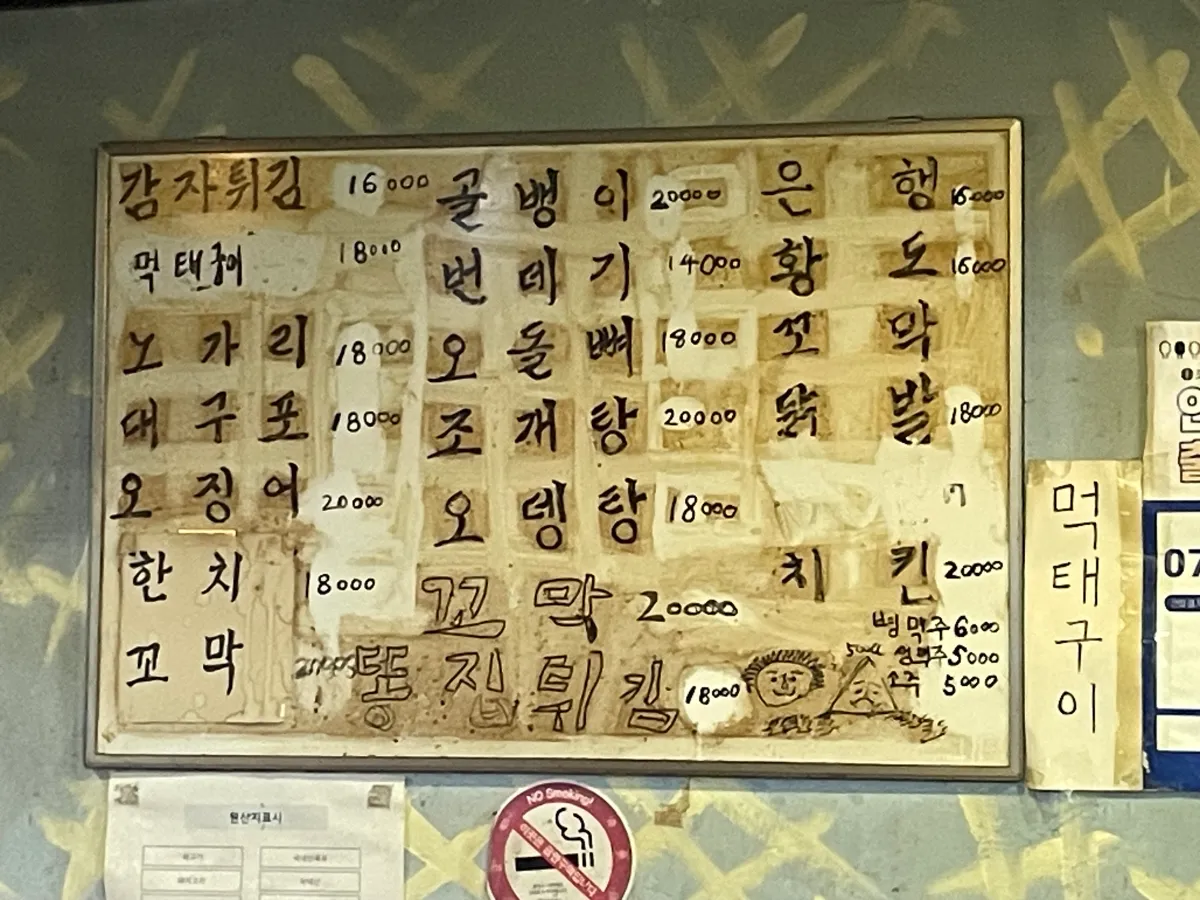 감자튀김 16000
먹태구이 18000
노가리 18000
대구포 18000
오징어 20000
한치 18000
꼬막
골뱅이 20000
번데기 14000
오돌뼈 18000
조개탕 20000
오뎅탕 18000
꼬막 20000
똥집튀김 18000
은행 16000
황도 16000
꼬막
닭발 18000
치킨 20000
병맥주 6000
생맥주 5000
소주 5000
먹태구이
07
원산지표시
NO Smoking!